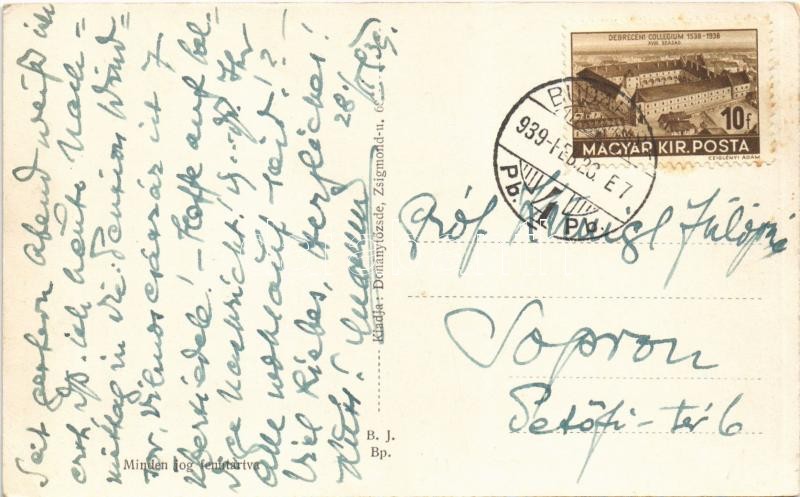 Seit gestern Abend weiss ich
erst, dass ich heute Nach=
mittag in die Pension Wind=
sor, Vilmos császár út 7
übersiedele! - Hoffe auf bal=
dige Nachricht
alle wohlauf seid!?-
Viel Liebes, Herzliches!
28/II. 39.
Kiadja: Dohánytőzsde, Zsigmond-u.
B. J.
Bp.
Minden jog fenntartva
DEBRECENI COLLEGIUM 1538-1938
XVIII. SZÁZAD
10f
MAGYAR KIR. POSTA
CZIGLÉNYI ÁDÁM
BUDAPEST
939 FEB. 28. E 7
Pb. Pb.
Próf. Fülöpné
Sopron
Petőfi-tér 6